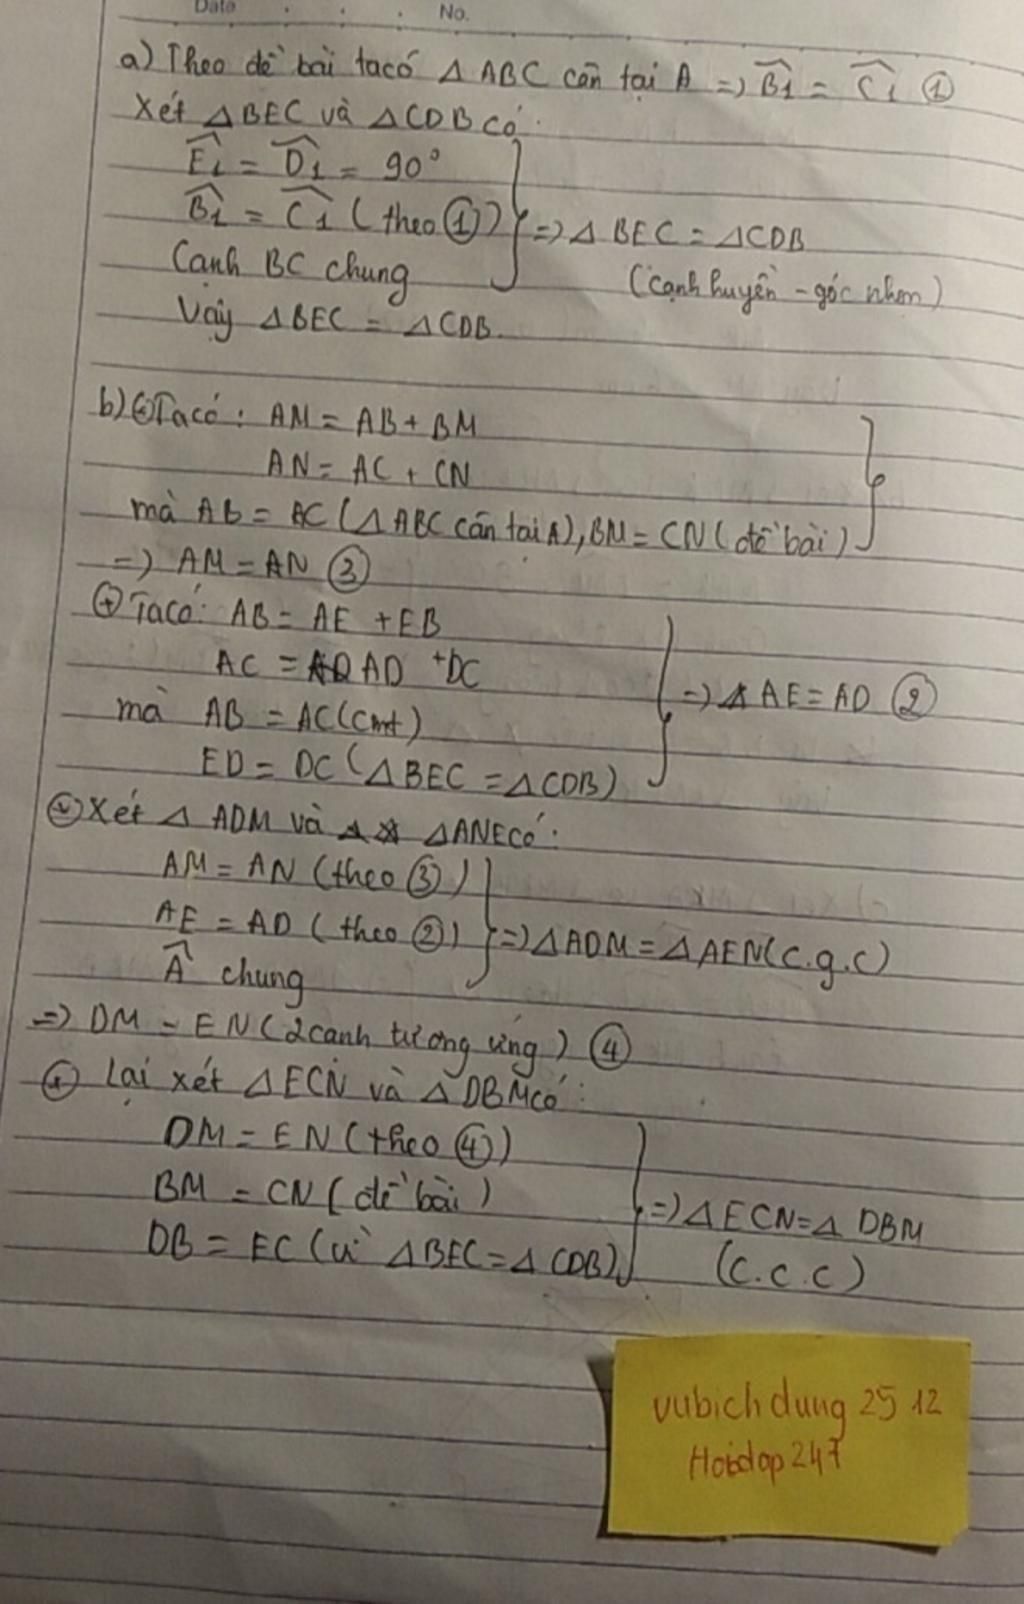 Date . . . No.
a) Theo đề bài ta có △ ABC cân tại A => B̂1 = Ĉ1 ①
Xét △BEC và △CDB có:
Ê1 = D̂1 = 90°
B̂1 = Ĉ1 (theo ①) => △ BEC = △CDB
Cạnh BC chung (cạnh huyền - góc nhọn)
Vậy △BEC = △CDB.
b) ⊕Ta có: AM = AB + BM
AN = AC + CN
mà AB = AC (△ABC cân tại A), BM = CN (đề bài)
=> AM = AN ③
⊕ Ta có: AB = AE + EB
AC = AD + DC => AE = AD ②
mà AB = AC (cmt)
ED = DC (△BEC = △CDB)
Xét △ ADM và △ANE có:
AM = AN (theo ③)
AE = AD (theo ②) => △ADM = △AEN (c.g.c)
Â chung
=> DM = EN (2 cạnh tương ứng) ④
⊕ Lại xét △ECN và △DBM có:
DM = EN (theo ④)
BM = CN (đề bài) => △ECN = △ DBM
DB = EC (vì △BEC = △CDB) (c.c.c)
vubichdung 25 12
Hoidap247